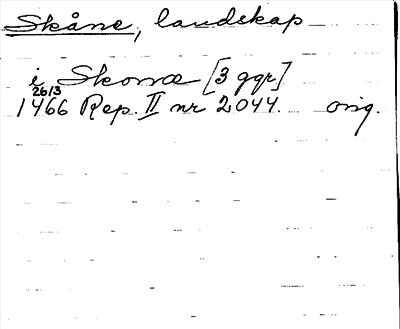 Skåne, landskap
i Skonæ [3 ggr]
26/3
1466 Rep. II nr 2044. orig.